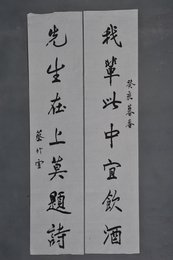 我輩此中宜飲酒
癸良暮春
先生在上莫題詩
蔡竹雲